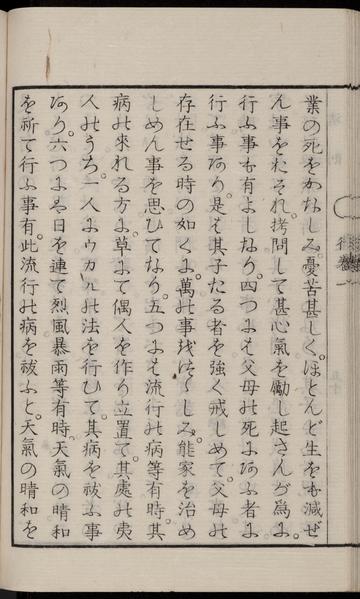 業の死をかなしみ。憂苦甚しく。ほとんど生をも減ぜ
ん事をおそれ。拷問して甚心氣を勵し起さんが爲に
行ふ事も有よしなり。四つには父母の死にあふ者に
行ふ事あり。是は其子たる者を強く戒しめて。父母の
存在せる時の如くに。萬の事つゝしみ。能家を治め
しめん事を思ひてなり。五つには流行の病等有時。其
病の來れる方に。草にて偶人を作り立置て。其處の夷
人のうち。一人にウカルの法を行ひて。其病を祓ふ事
あり。六つには日を連て烈風暴雨等有時。天氣の晴和
を祈て行ふ事有。此流行の病を祓ふと。天氣の晴和を